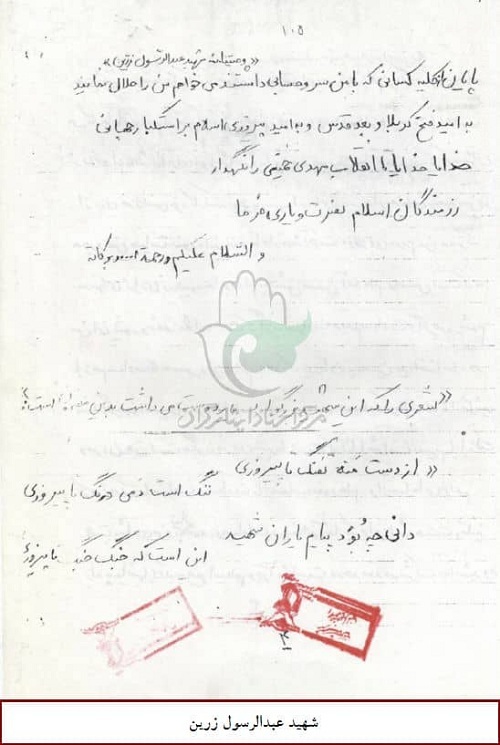 ۱۰۵
«وصیتنامه شهید عبدالرسول زرین»
پایان از کلیه کسانی که با من سر و حسابی داشتند می خواهم من را حلال نمایید
به امید فتح کربلا و بعد قدس و به امید پیروزی اسلام بر استکبار جهانی
خدایا خدایا تا انقلاب مهدی خمینی را نگهدار
رزمندگان اسلام نصرت و یاری فرما
و السلام علیکم و رحمة الله و برکاته
«شعری را که این شهید بزرگوار داشت بدین است:
«از دست منه تفنگ تا پیروزی
ننگ است دمی درنگ تا پیروزی
دانی چه بُوَد پیام یاران شهید
این است که جنگ جنگ تا پیروزی
۴
شهید عبدالرسول زرین